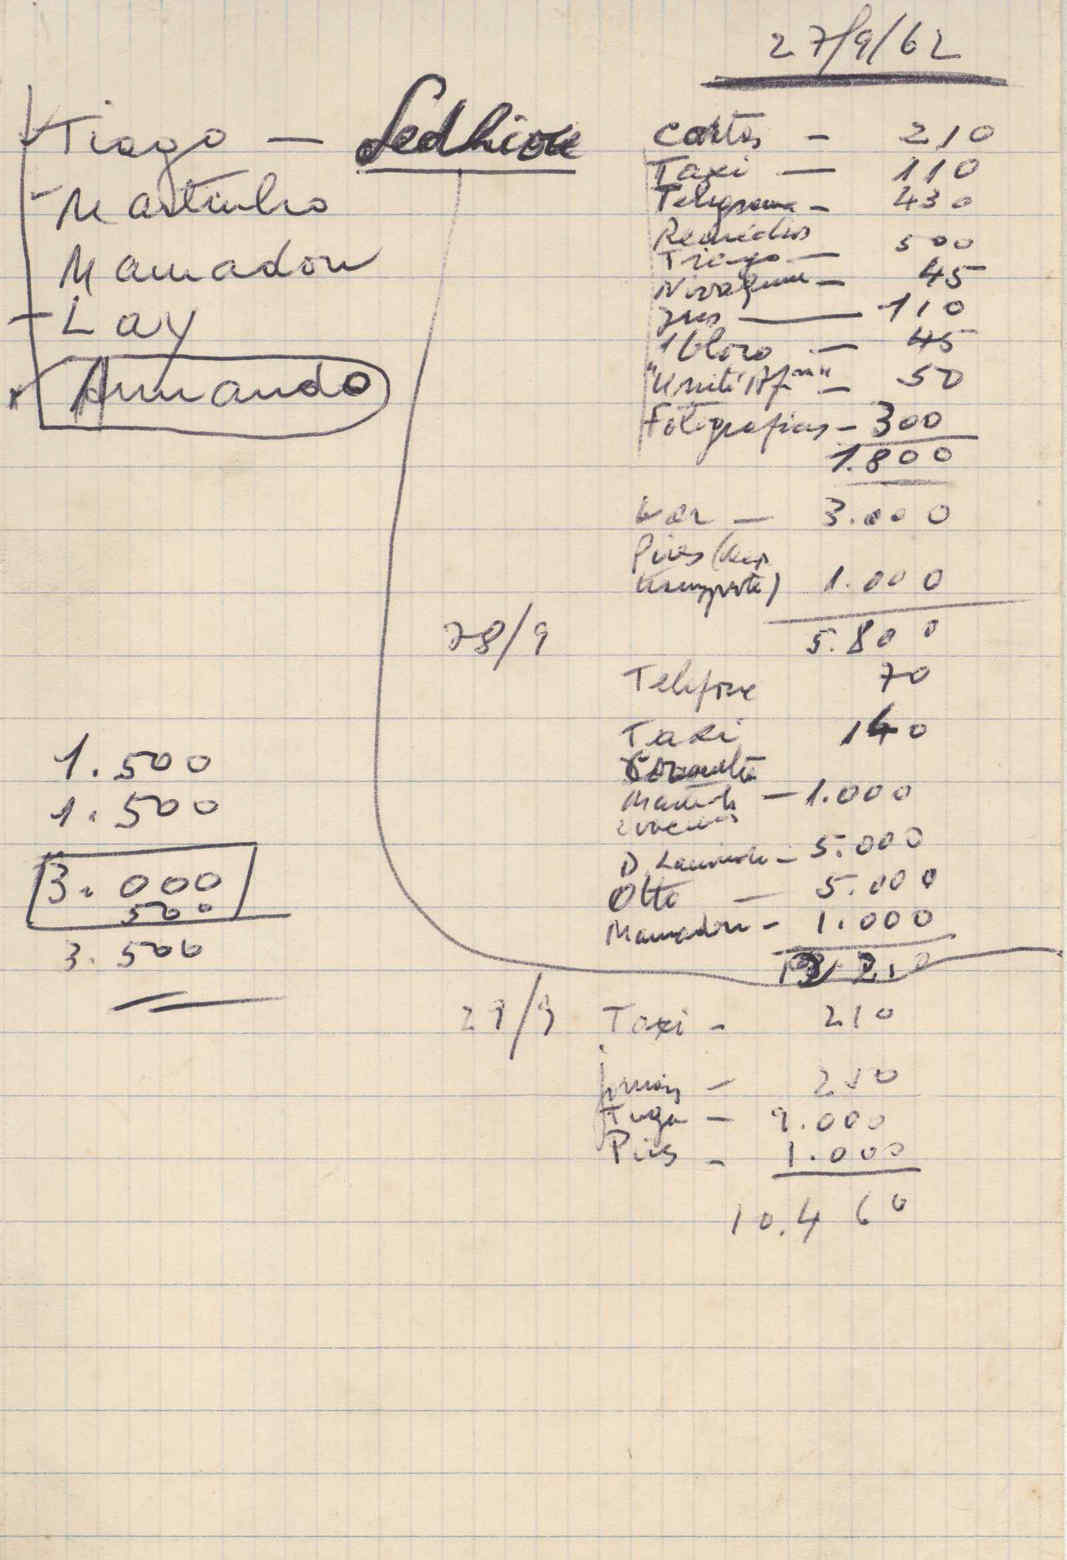 27/9/62
Tiago — Sedhiou
Martinho
Mamadou
Lay
Armando
Cartas - 210
Taxi — 110
Telegrama - 430
Remédios
Tiago — 500
Nivaquine - 45
Jus — 110
1 bloco — 45
"Unité Af.ne" - 50
Fotografias - 300
1.800
3.000
Pires (
transporte) 1.000
5.800
28/9
Telefone 70
Taxi 140
— 1.000
D. - 5.000
Otto — 5.000
Mamadou - 1.000
1.500
1.500
3.000
500
3.500
29/9 Taxi - 210
— 250
— 9.000
Pires - 1.000
10.460